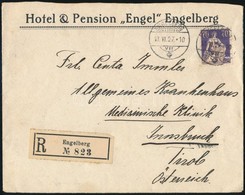 Hotel & Pension „Engel" Engelberg
Frl. Centa Immler
Allgemeines Krankenhaus
Medizinische Klinik
Innsbruck
Tirol
Österreich
R
Engelberg
№ 823